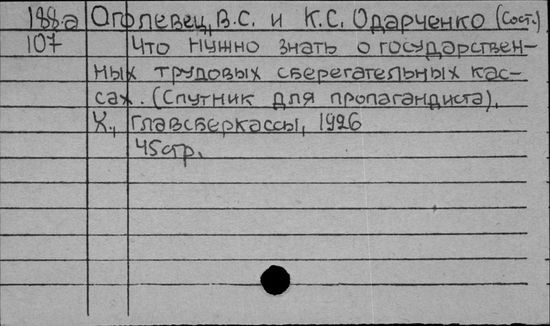 188-а Оголевец, В.С. и К.С. Одарченко (Сост.)
107 Что нужно знать о государствен-
ных трудовых сберегательных кас-
сах. (Спутник для пропагандиста),
Х., Главсберкассы, 1926
45стр.